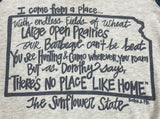 I come from a place...
With endless fields of wheat
LARGE OPEN PRAIRIES
our Barbeque can't be beat
You see Hunting & Camo wherever you roam
But as Dorothy says,
THERE'S NO PLACE LIKE HOME
The Sunflower State